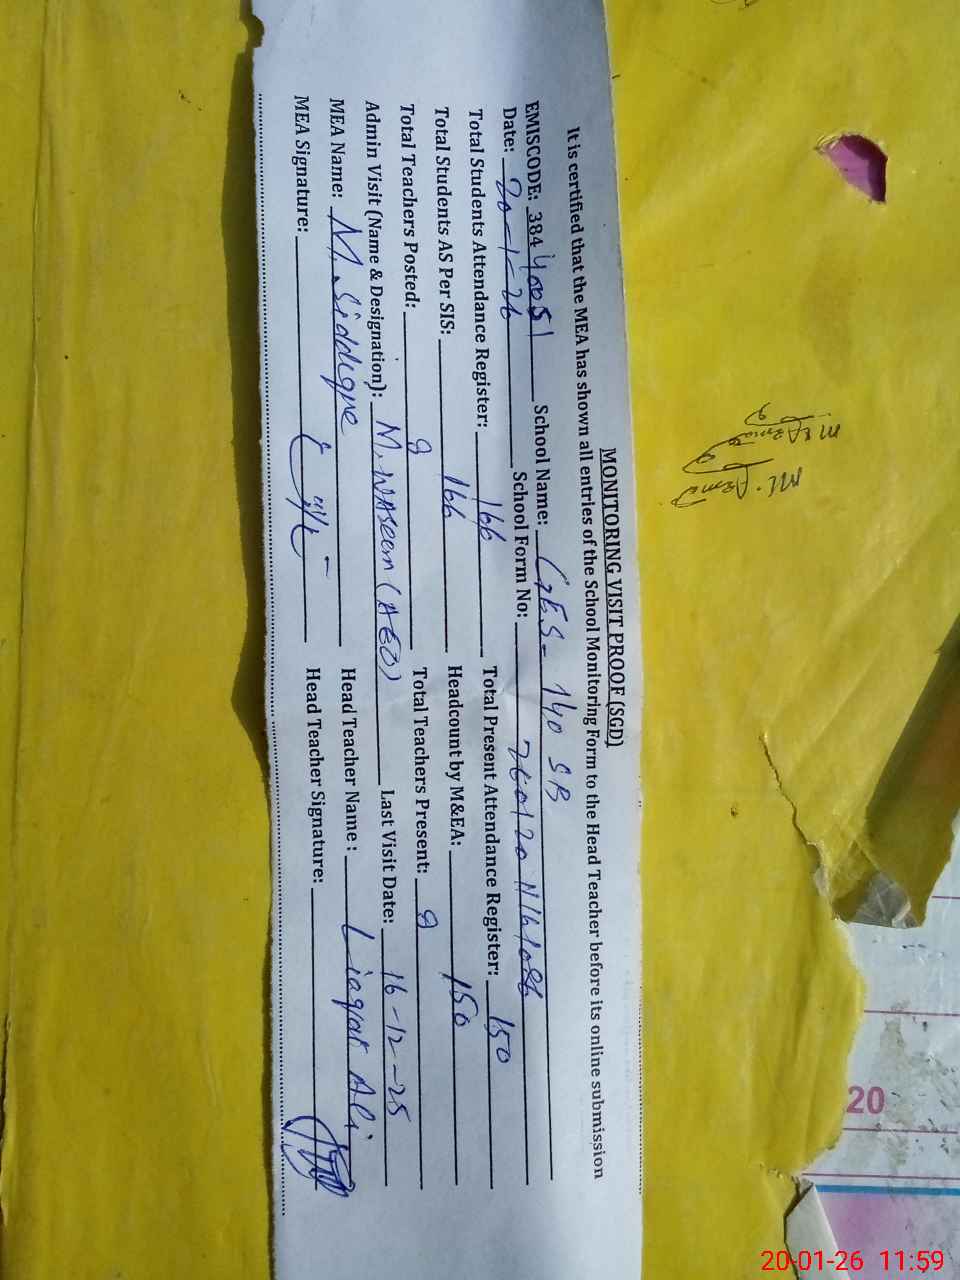 MONITORING VISIT PROOF (SGD)
It is certified that the MEA has shown all entries of the School Monitoring Form to the Head Teacher before its online submission
EMISCODE: 384 40051 School Name: G.E.S - 140 SB
Date: 20-1-26 School Form No:
Total Students Attendance Register: 166 Total Present Attendance Register: 150
Total Students AS Per SIS: 166 Headcount by M&EA: 150
Total Teachers Posted: 8 Total Teachers Present: 8
Admin Visit (Name & Designation): M. Waseem (AEO) Last Visit Date: 16-12-25
MEA Name: M. Siddique Head Teacher Name : Liaqat Ali
MEA Signature: Head Teacher Signature:
20
20-01-26 11:59